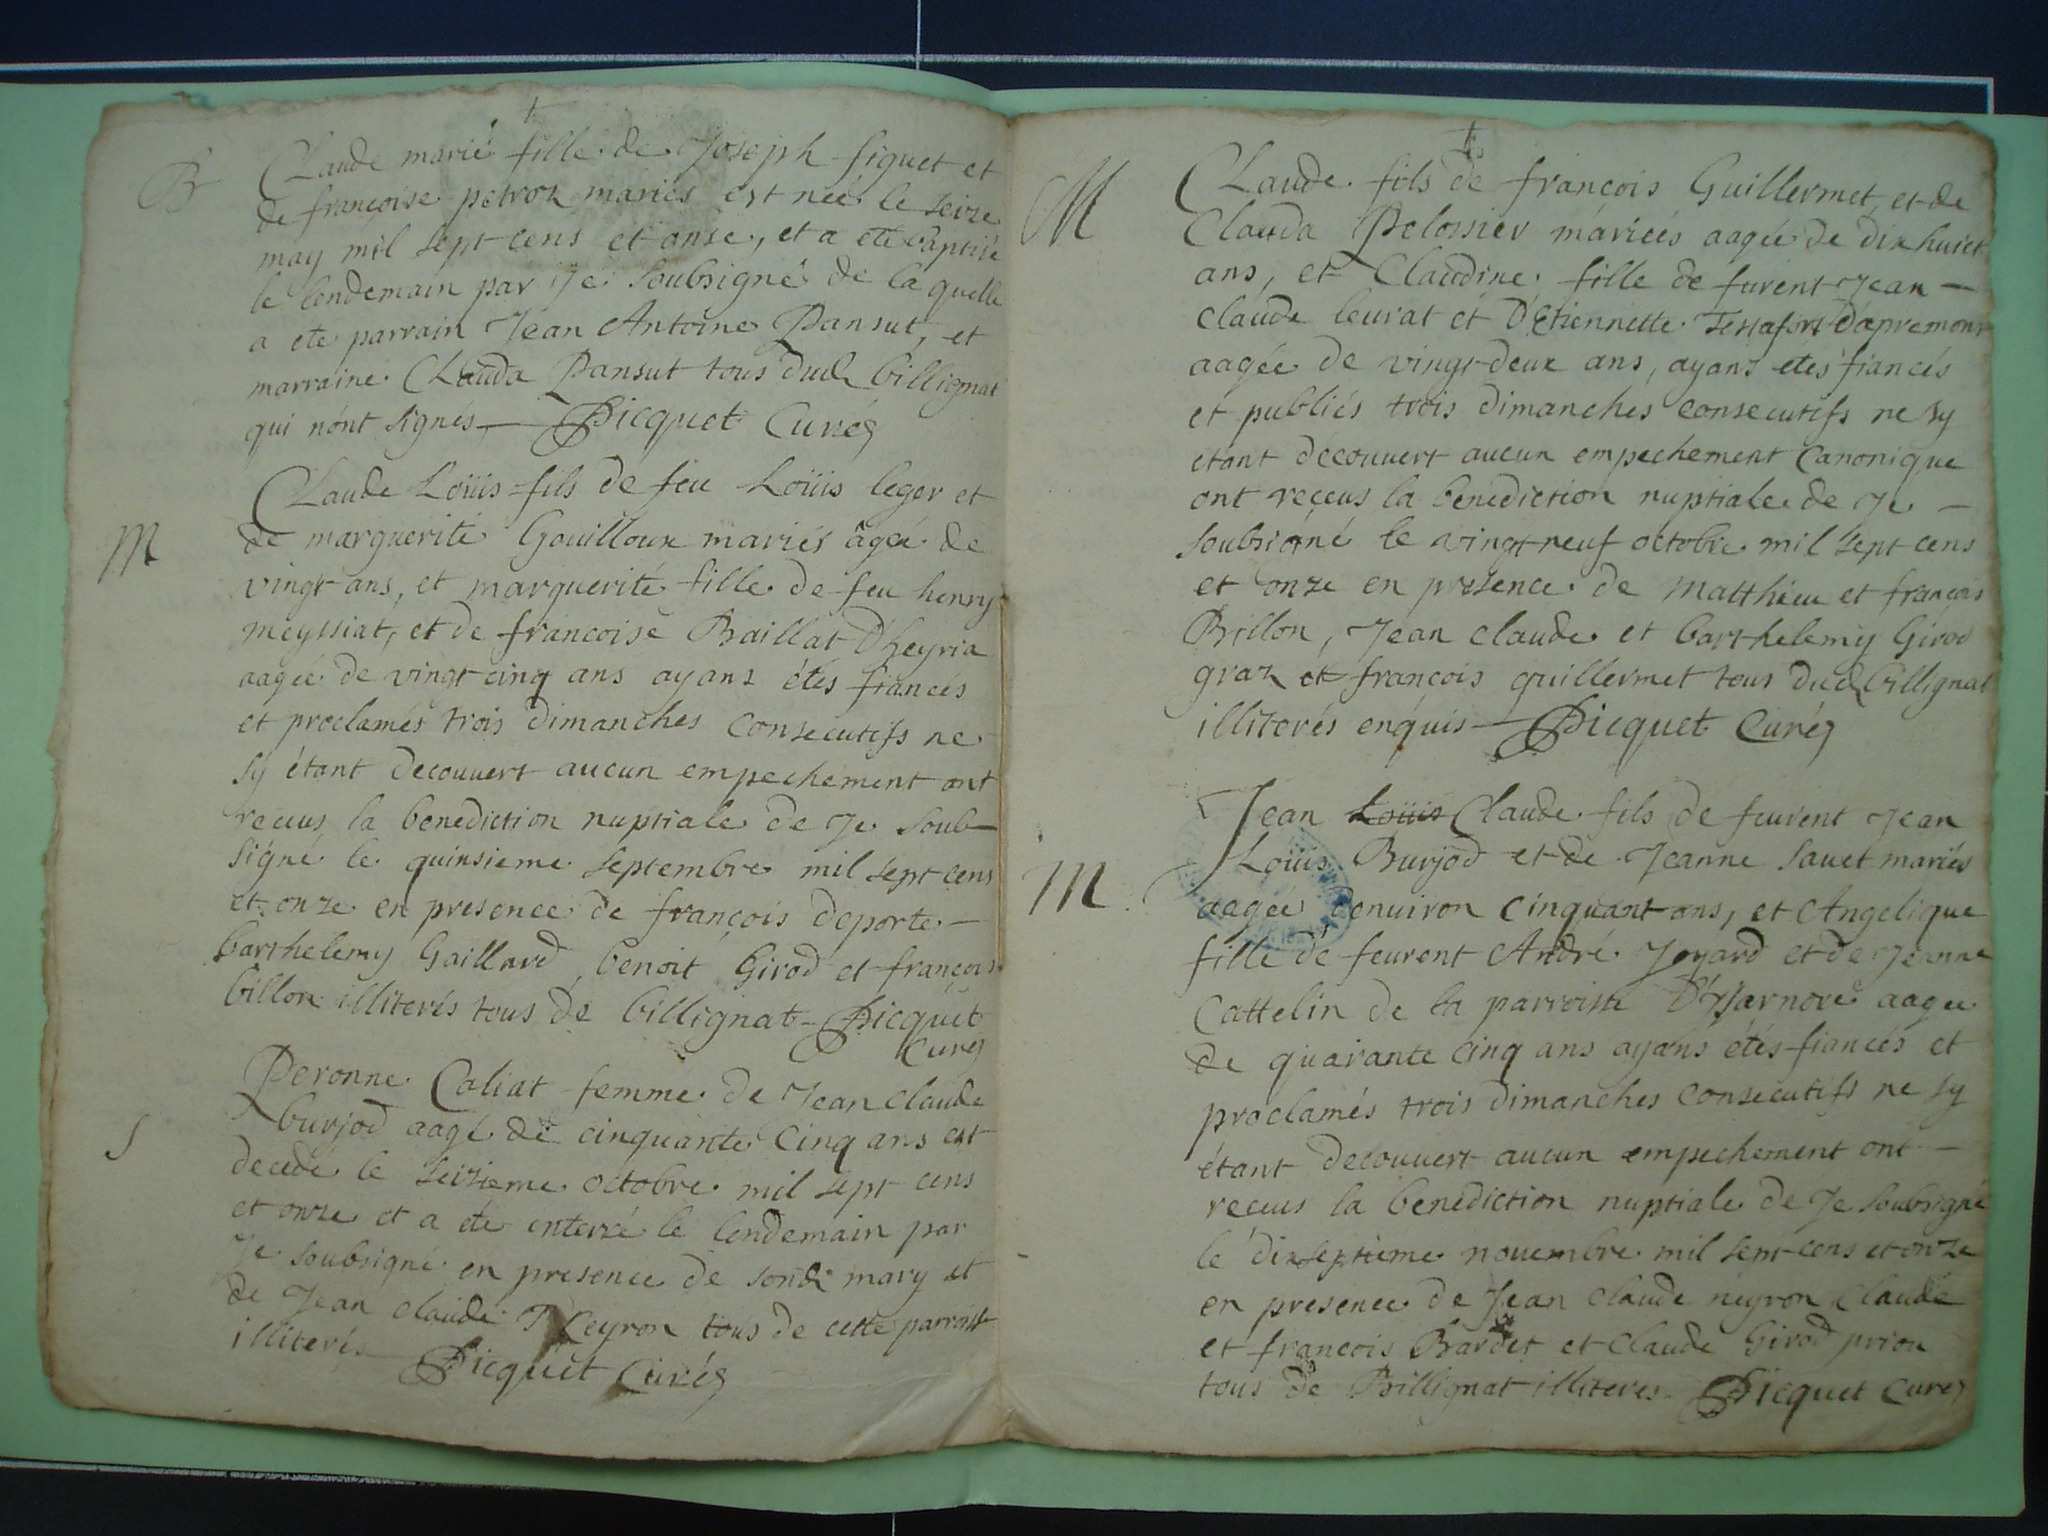 B
Claude marie fille de Joseph figuet et
de françoise petroz mariés est née le seize
may mil sept cens et onse, et a eté baptisé
le lendemain par Je soubsigné de la quelle
a eté parrain Jean Antoine Pansut, et
marraine Clauda Pansut tous dud billignat
qui nónt signés — Picquet Curé
M
Claude Loüis fils de feu Loüis leger et
de marguerite Gouilloux mariés âgée de
vingt ans, et marguerite fille de feu henry
meyssiat, et de francoise Baillat D'heyria
aagée de vingt cinq ans ayans étés fiancés
et proclamés trois dimanches consecutifs ne
sy étant decouvert aucun empechement ont
recus la benediction nuptiale de Je soub-
signé le quinsieme septembre mil sept cens
et onze en presence de françois deporte —
barthelemy Gaillard, benoit Girod et françois
billon illiterés tous de billignat — Picquet
Curé
S
Peronne Caliat femme de Jean claude
burjod aagé de cinquante cinq ans est
decedé le seizieme octobre mil sept cens
et onze et a eté enterré le lendemain par
Je soubsigné en presence de sond mary et
de Jean claude Peyron tous de cette parroisse
illiterés — Picquet Curé
M
Claude fils de françois Guillermet, et de
Clauda Pelossier máriées aagée de dix huict
ans, et Claudine fille de furent Jean —
claude leurat et D'Etiennette Testafort d'apremont
aagée de vingt deux ans, ayans etés fiancés
et publiés trois dimanches consecutifs ne sy
etant découuert aucun empechement Canonique
ont receus la benediction nuptiale de Je —
soubsigné le vingt neuf octobre mil sept cens
et onze en presence de matthieu et françois
Billon, Jean claude et barthelemy Girod
graz et françois guillermet tous dud billignat
illiterés enquis — Picquet Curé
M
Jean Loüis Claude fils de feurent Jean
Loüis Burjod et de Jeanne sauet mariés
aagée d'enuiron cinquant ans, et Angelique
fille de feurent André Joyard et de Jeanne
Cattelin de la parroisse D'Yzarnore aagee
de quarante cinq ans ayans étés fiancés et
proclamés trois dimanches consecutifs ne sy
étant decouuert aucun empechement ont —
recus la benediction nuptiale de Je soubsigné
le dixseptieme nouembre mil sept cens et onze
en presence de Jean claude neyron Claude
et francois Bardet et Claude Girod priou
tous de Billignat illiteres — Picquet Curé